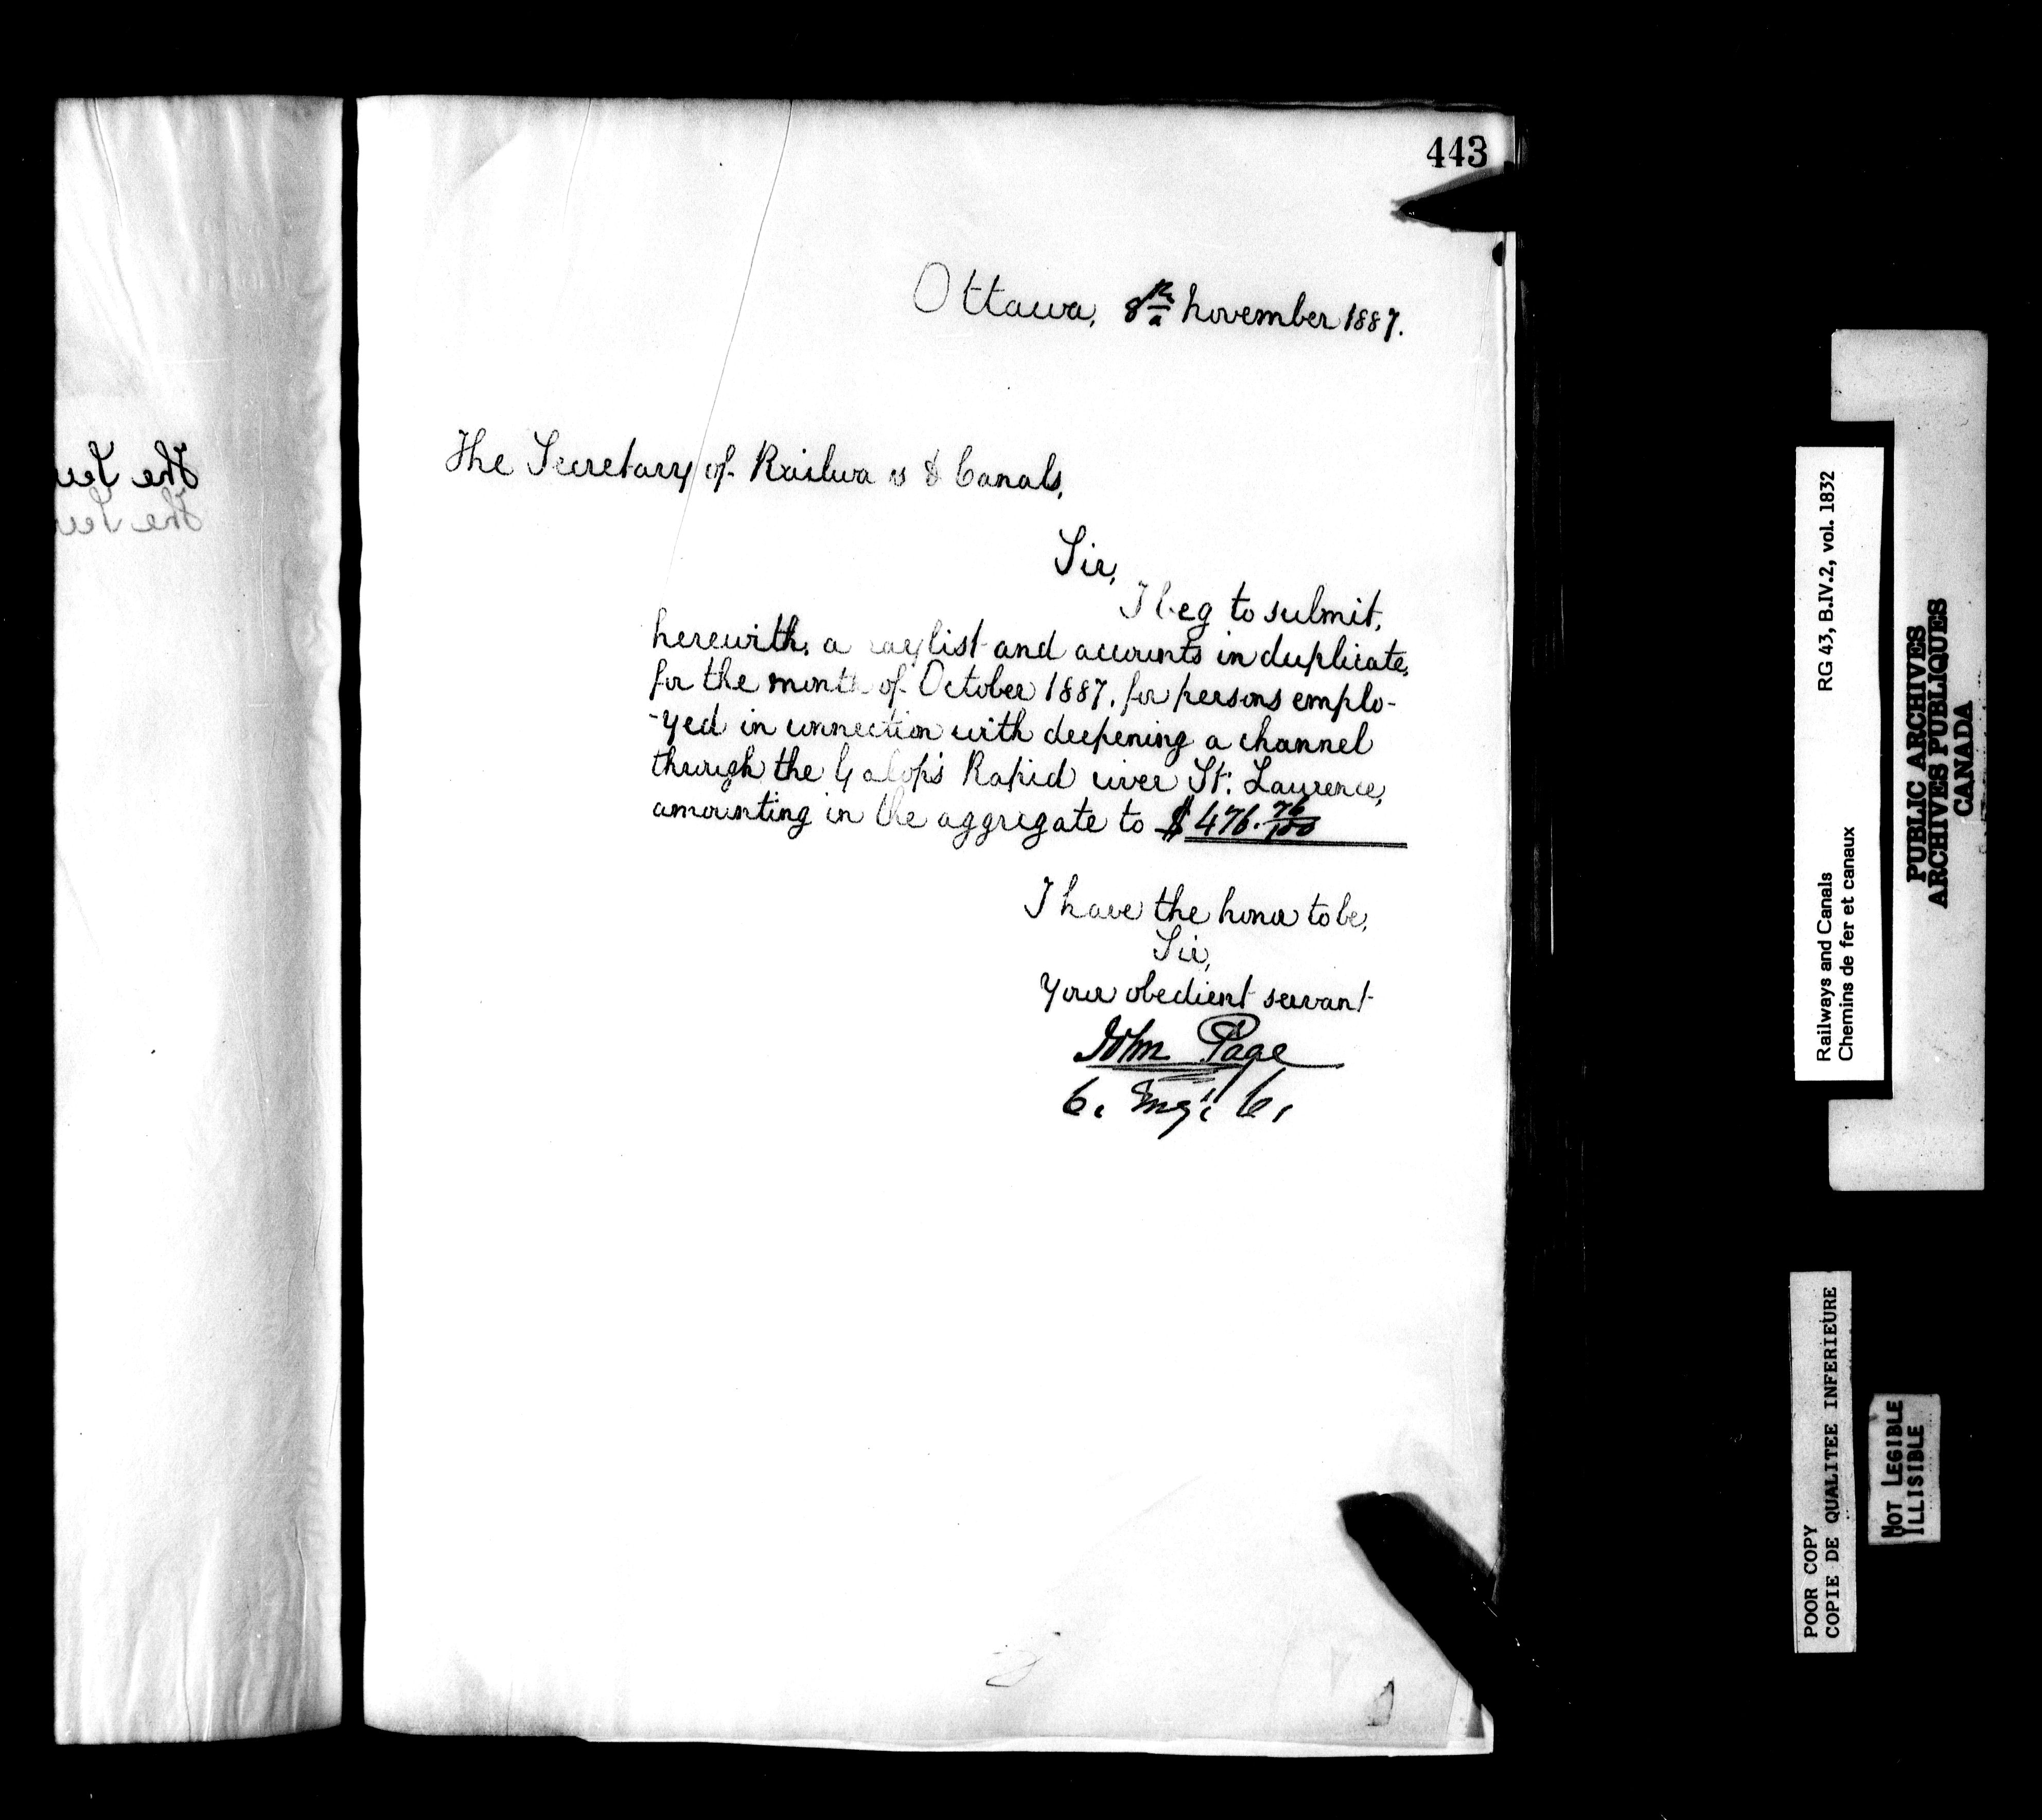 443
Ottawa, 8th November 1887.
The Secretary of Railwa s & Canals,
Sir,
I beg to submit,
herewith, a paylist and accounts in duplicate,
for the month of October 1887, for persons emplo-
-yed in connection with deepening a channel
through the Galops Rapid river St: Lawrence,
amounting in the aggregate to $476.76/100
I have the honor to be,
Sir,
Your obedient servant
John Page
C. Eng: C.
The Sec
The Sec
RG 43, B.IV.2, vol. 1832
Railways and Canals
Chemins de fer et canaux
PUBLIC ARCHIVES
ARCHIVES PUBLIQUES
CANADA
POOR COPY
COPIE DE QUALITEE INFERIEURE
NOT LEGIBLE
ILLISIBLE